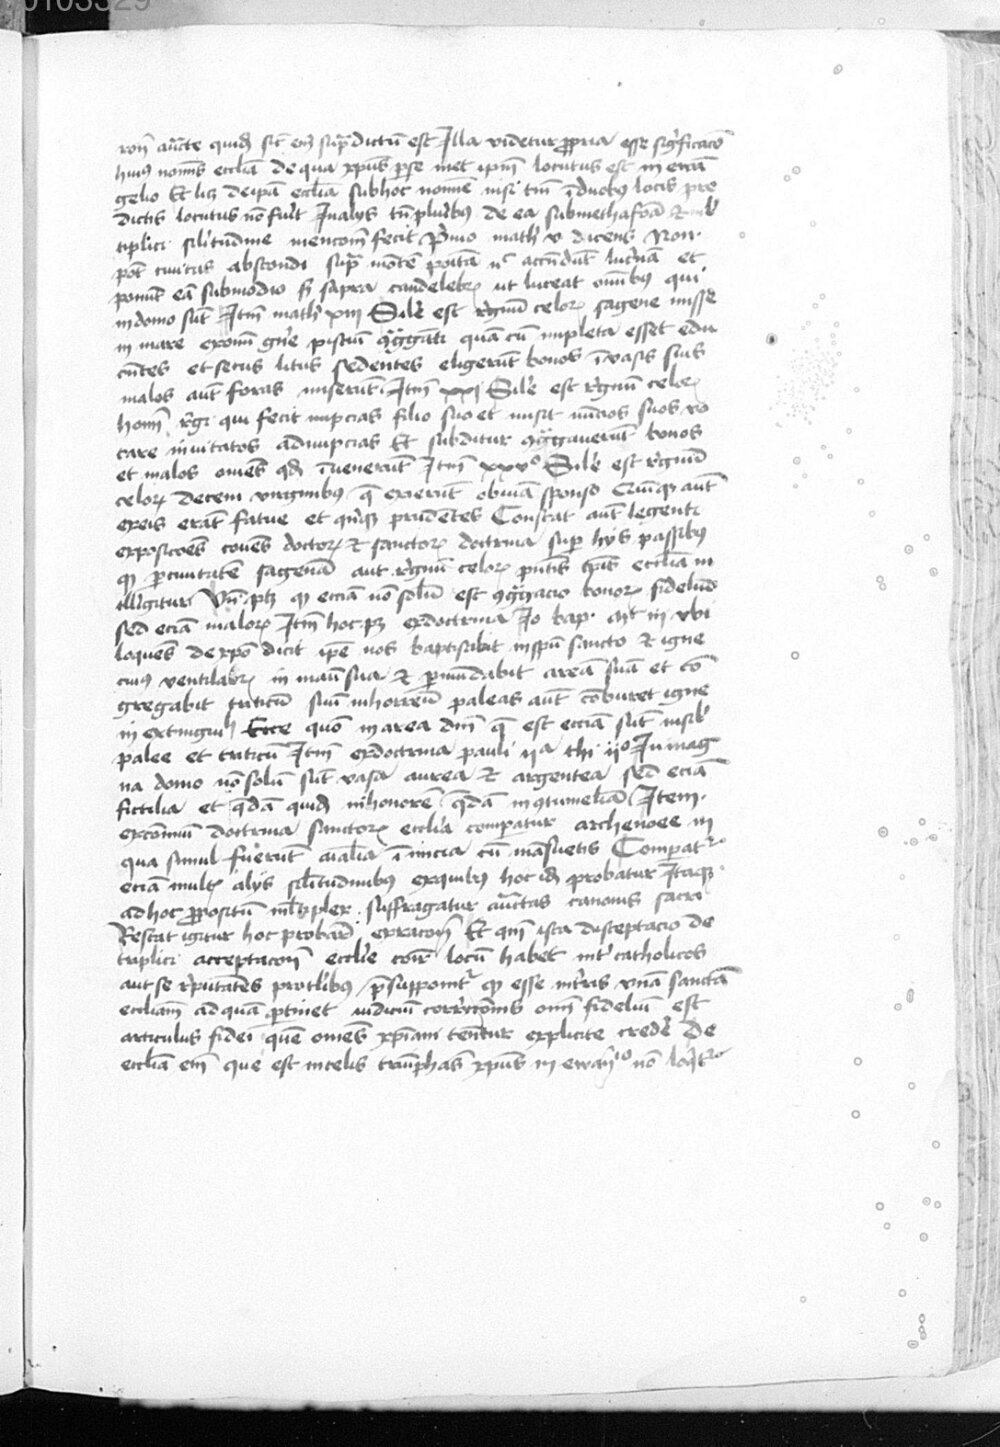 0103329
ron aucte quid sit em supradictu est Illa videtur propria esse significaco
huius nominis ecclia de qua xpus per se met ipm locutus est in evan
gelio Et licz de ipa ecclia sub hoc nomine nisi tm in duobus locis pre
dictis locutus no fuit In alys tn pluribus de ea sub methafora et mul
tiplici silitudine mencom fecit Primo math v dicens Non
pot civitas abscondi supra monte posita nec accendut lucerna et
ponut ea sub modio sed supra candelabrum ut luceat omnibus qui
in domo sut Itm math xiii Sile est regnu celorum sagene misse
in mare ex omni gne pisciu congreganti quam cu impleta esset edu
centes et secus litus sedentes eligerut bonos in vasis suis
malos aut foras miserut Itm xxi Sile est regnu celorum
homi regi qui fecit nupcias filio suo et misit nucios suos vo
care invitatos ad nupcias Et subditur congregaverut bonos
et malos omes quos invenerut Itm xxvo Sile est regnu
celorum decem virginibus que exierut obviam sponso Quinque aut
ex eis erat fatue et quinque prudentes Constat aut legenti
exposicoes coues doctorum et sanctorum doctrina super hys passibus
quod per civitate sagena aut regnu celorum pntis tpis ecclia in
telligitur Un patet quod eccia no solum est congregacio bonorum fideliu
sed ecia malorum Itm hoc patet ex doctrina Jo bap mt iii ubi
loquens de xpo dicit ipe vos baptisabit in spu sancto et igne
cuius ventilabrum in manu sua et permundabit area sua et co
gregabit triticu suu in horreu paleas aut comburet igne
inextinguibili Ecce quo in area dni que est eccia sut simul
palee et triticu Itm ex doctrina pauli iia thi iio In mag
na domo no solu sut vasa aurea et argentea sed ecia
fictilia et quedam quidem in honore quedam in contumelia Item
ex communi doctrina sanctorum ecclia comparatur arche noee in
qua simul fuerut aialia immicia cu mansuetis Comparatur
ecia multis alys silitudinibus ex quibus hoc idem probatur Itaque
ad hoc propositu multipler suffragatur auctas canonis sacri
Restat igitur hoc probare ex racom Et quia ista disceptacio de
triplici acceptacon ecclie coiter locu habet inter catholicos
aut se reputates pro talibus presupponitur quod esse matris una sancta
eccliam ad quam pertinet iudiciu correccionis omi fideliu est
articulus fidei que omes xpiani tenetur explicite crede De
ecclia em que est in celis triuphas xpus in ewanio no loquitur